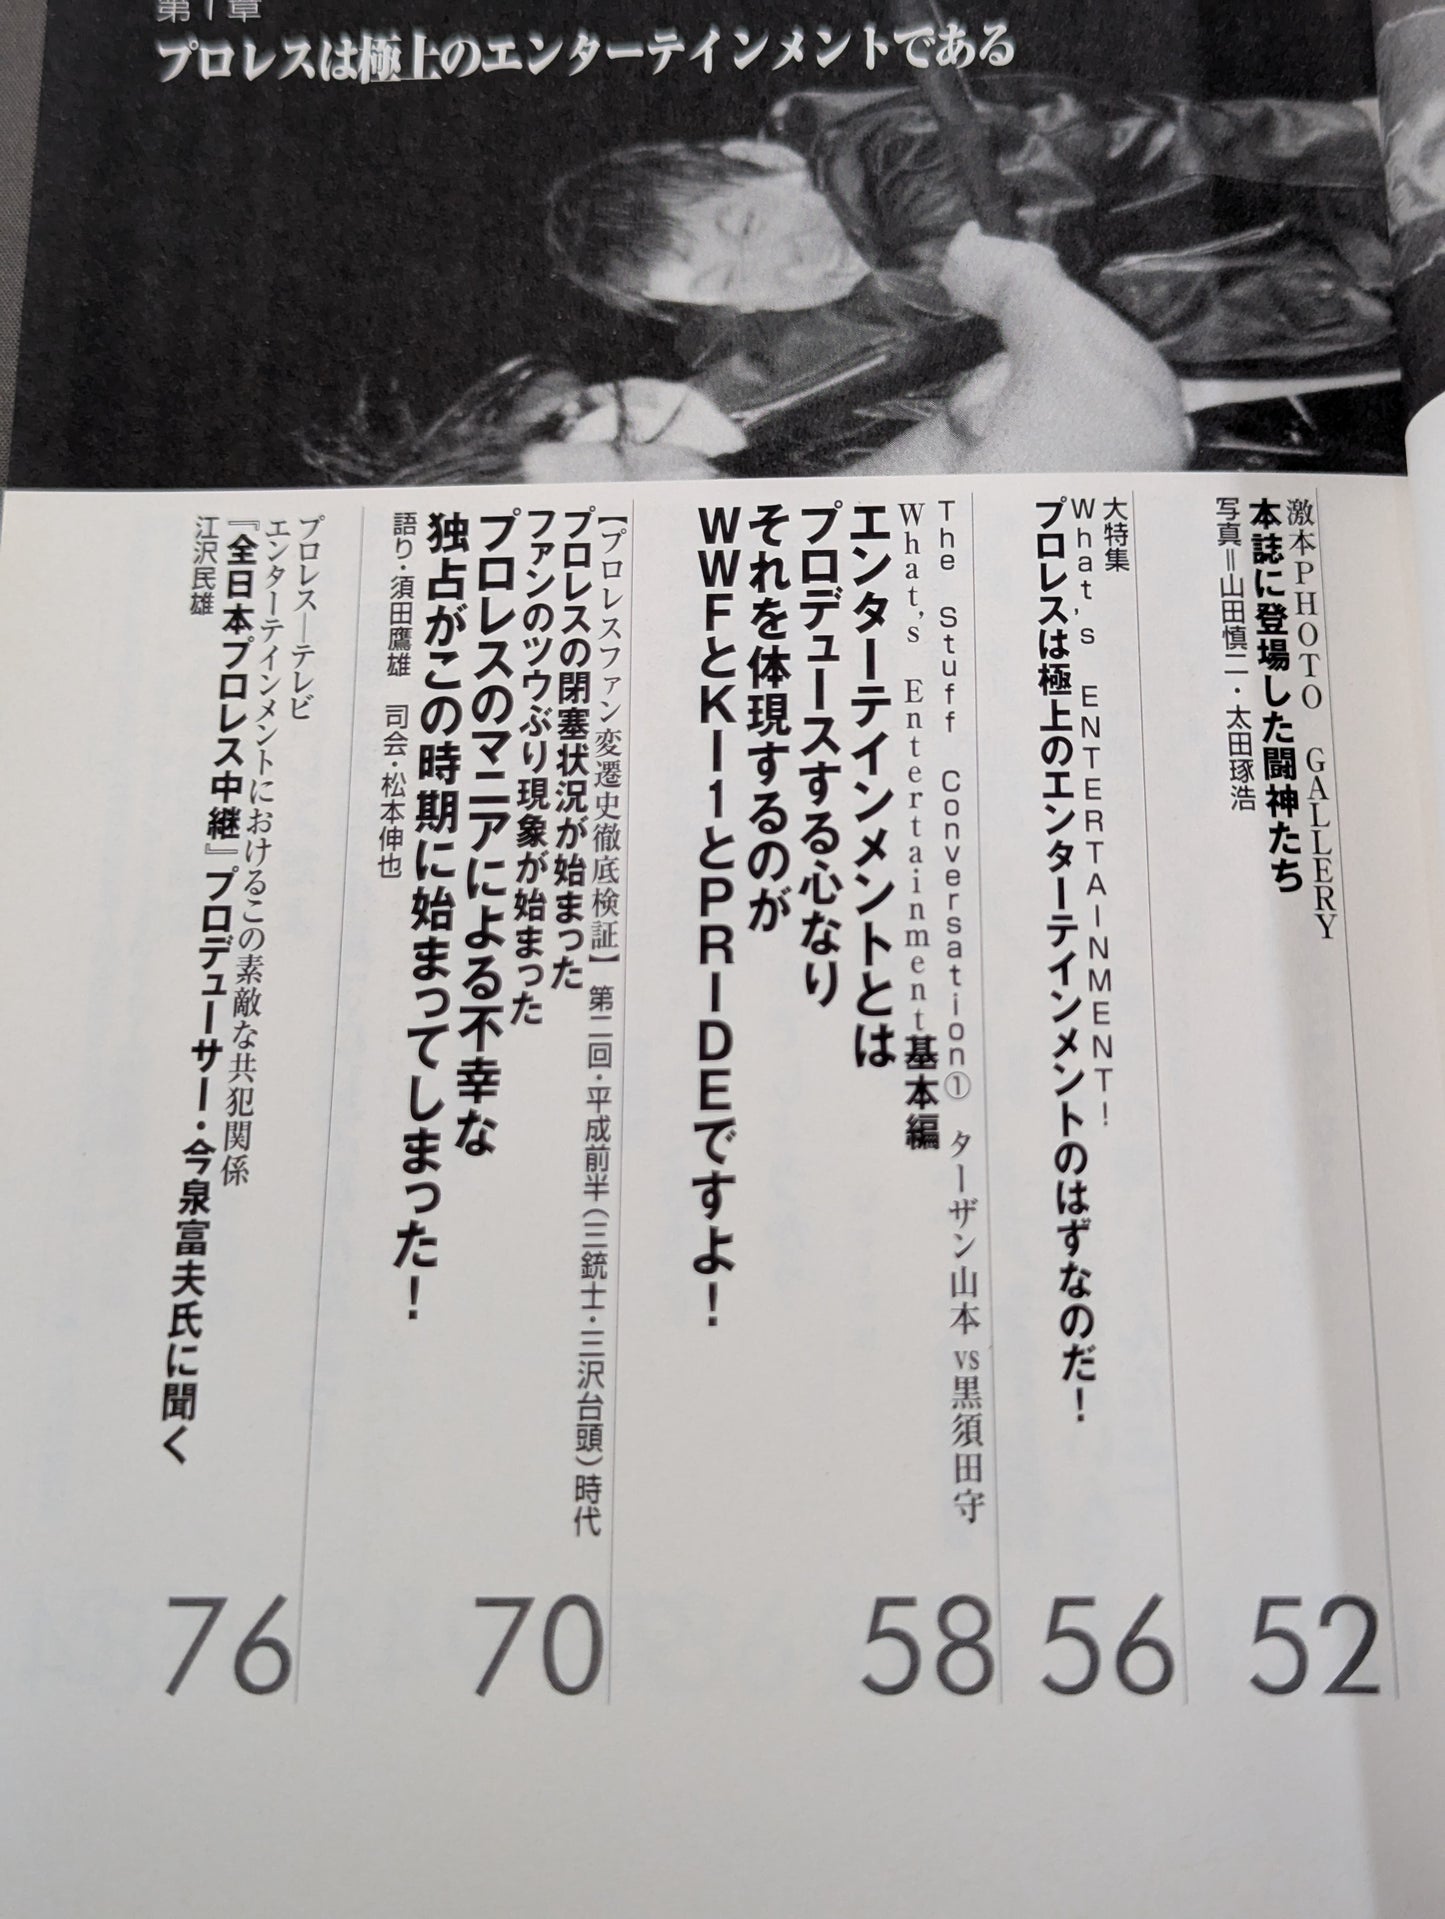 第1章
プロレスは極上のエンターテインメントである
激本PHOTO GALLERY
本誌に登場した闘神たち
写真=山田慎二・太田琢浩
52
大特集
What's ENTERTAINMENT!
プロレスは極上のエンターテインメントのはずなのだ!
56
The Stuff Conversation① ターザン山本 vs 黒須田守
What's Entertainment基本編
エンターテインメントとは
プロデュースする心なり
それを体現するのが
WWFとK-1とPRIDEですよ!
58
【プロレスファン変遷史徹底検証】 第二回・平成前半(三銃士・三沢台頭)時代
プロレスの閉塞状況が始まった
ファンのツウぶり現象が始まった
プロレスのマニアによる不幸な
独占がこの時期に始まってしまった!
語り・須田鷹雄 司会・松本伸也
70
プロレス―テレビ
エンターテインメントにおけるこの素敵な共犯関係
『全日本プロレス中継』プロデューサー・今泉富夫氏に聞く
江沢民雄
76